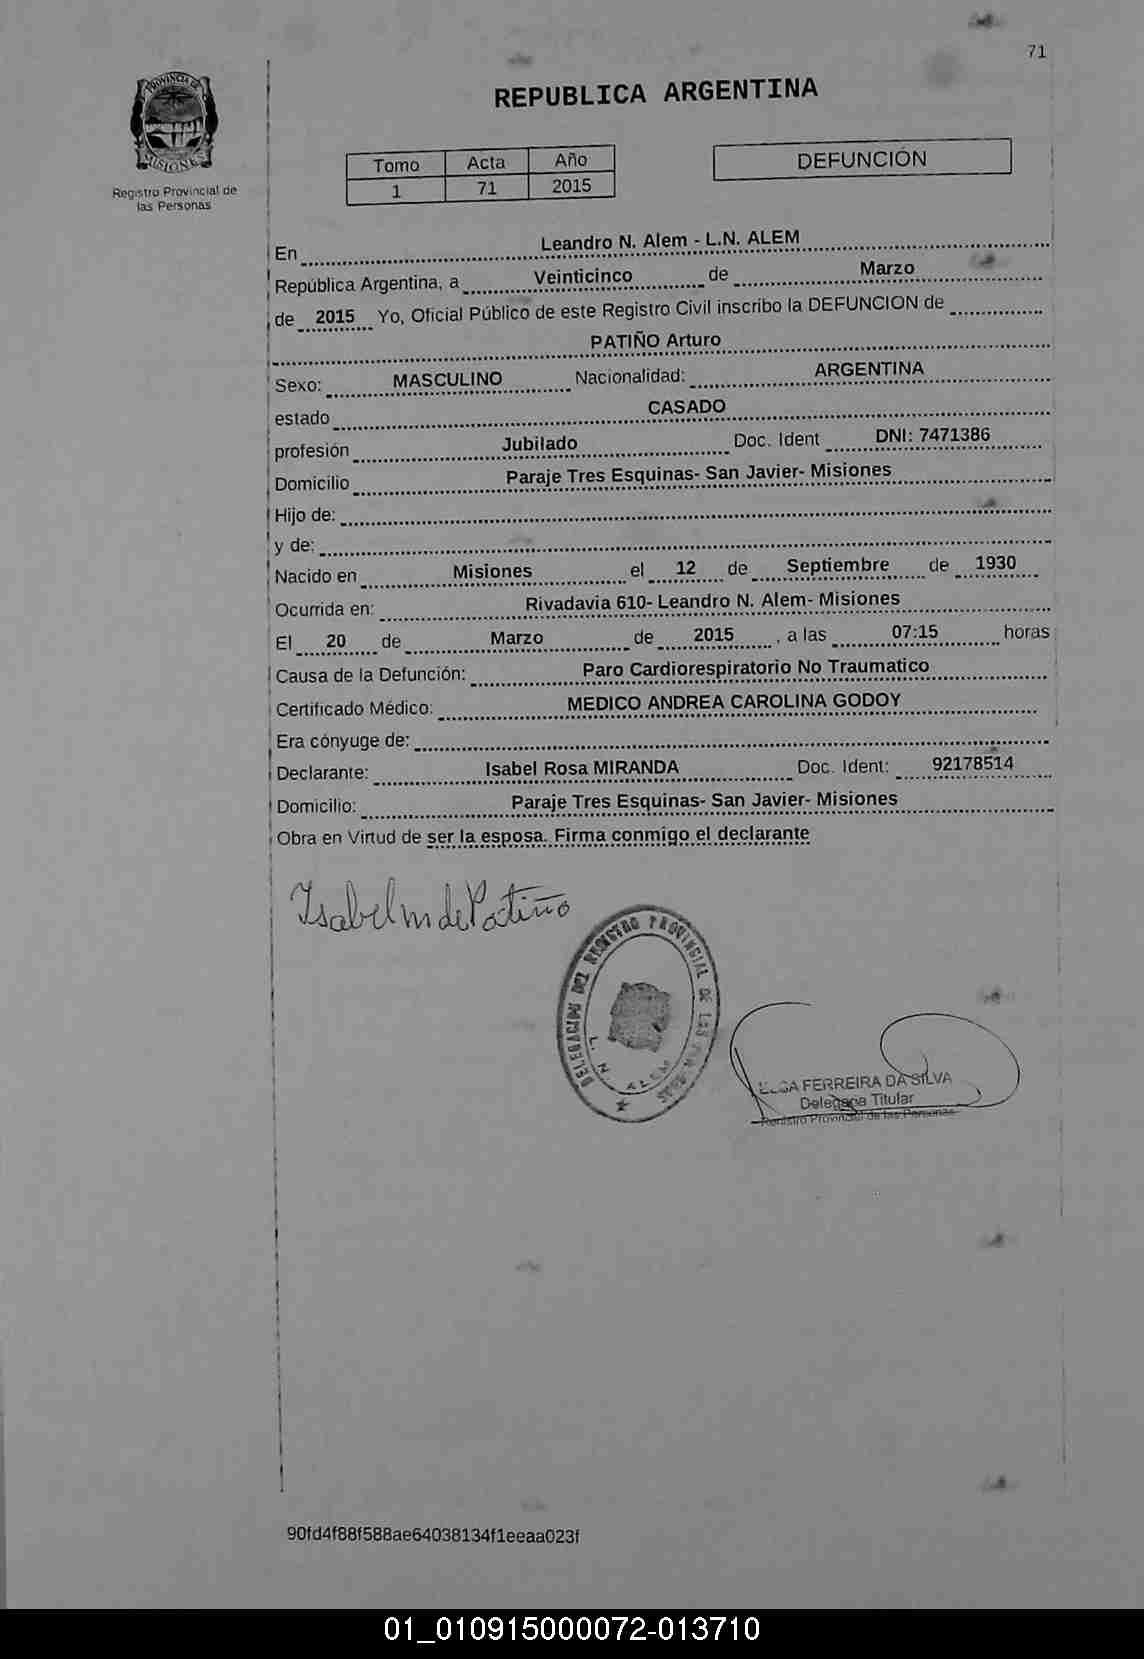 71
PROVINCIA DE
MISIONES
Registro Provincial de
las Personas
REPUBLICA ARGENTINA
Tomo Acta Año
1 71 2015
DEFUNCIÓN
En Leandro N. Alem - L.N. ALEM
República Argentina, a Veinticinco de Marzo
de 2015 Yo, Oficial Público de este Registro Civil inscribo la DEFUNCION de
PATIÑO Arturo
Sexo: MASCULINO Nacionalidad: ARGENTINA
estado CASADO
profesión Jubilado Doc. Ident DNI: 7471386
Domicilio Paraje Tres Esquinas- San Javier- Misiones
Hijo de:
y de:
Nacido en Misiones el 12 de Septiembre de 1930
Ocurrida en: Rivadavia 610- Leandro N. Alem- Misiones
El 20 de Marzo de 2015 , a las 07:15 horas
Causa de la Defunción: Paro Cardiorespiratorio No Traumatico
Certificado Médico: MEDICO ANDREA CAROLINA GODOY
Era cónyuge de:
Declarante: Isabel Rosa MIRANDA Doc. Ident: 92178514
Domicilio: Paraje Tres Esquinas- San Javier- Misiones
Obra en Virtud de ser la esposa. Firma conmigo el declarante
Isabel m de Patiño
DELEGACION DEL REGISTRO PROVINCIAL DE LAS
L. N. ALEM
FERREIRA DA SILVA
Delegada Titular
Registro Provincial de las Personas
90fd4f88f588ae64038134f1eeaa023f
01_010915000072-013710